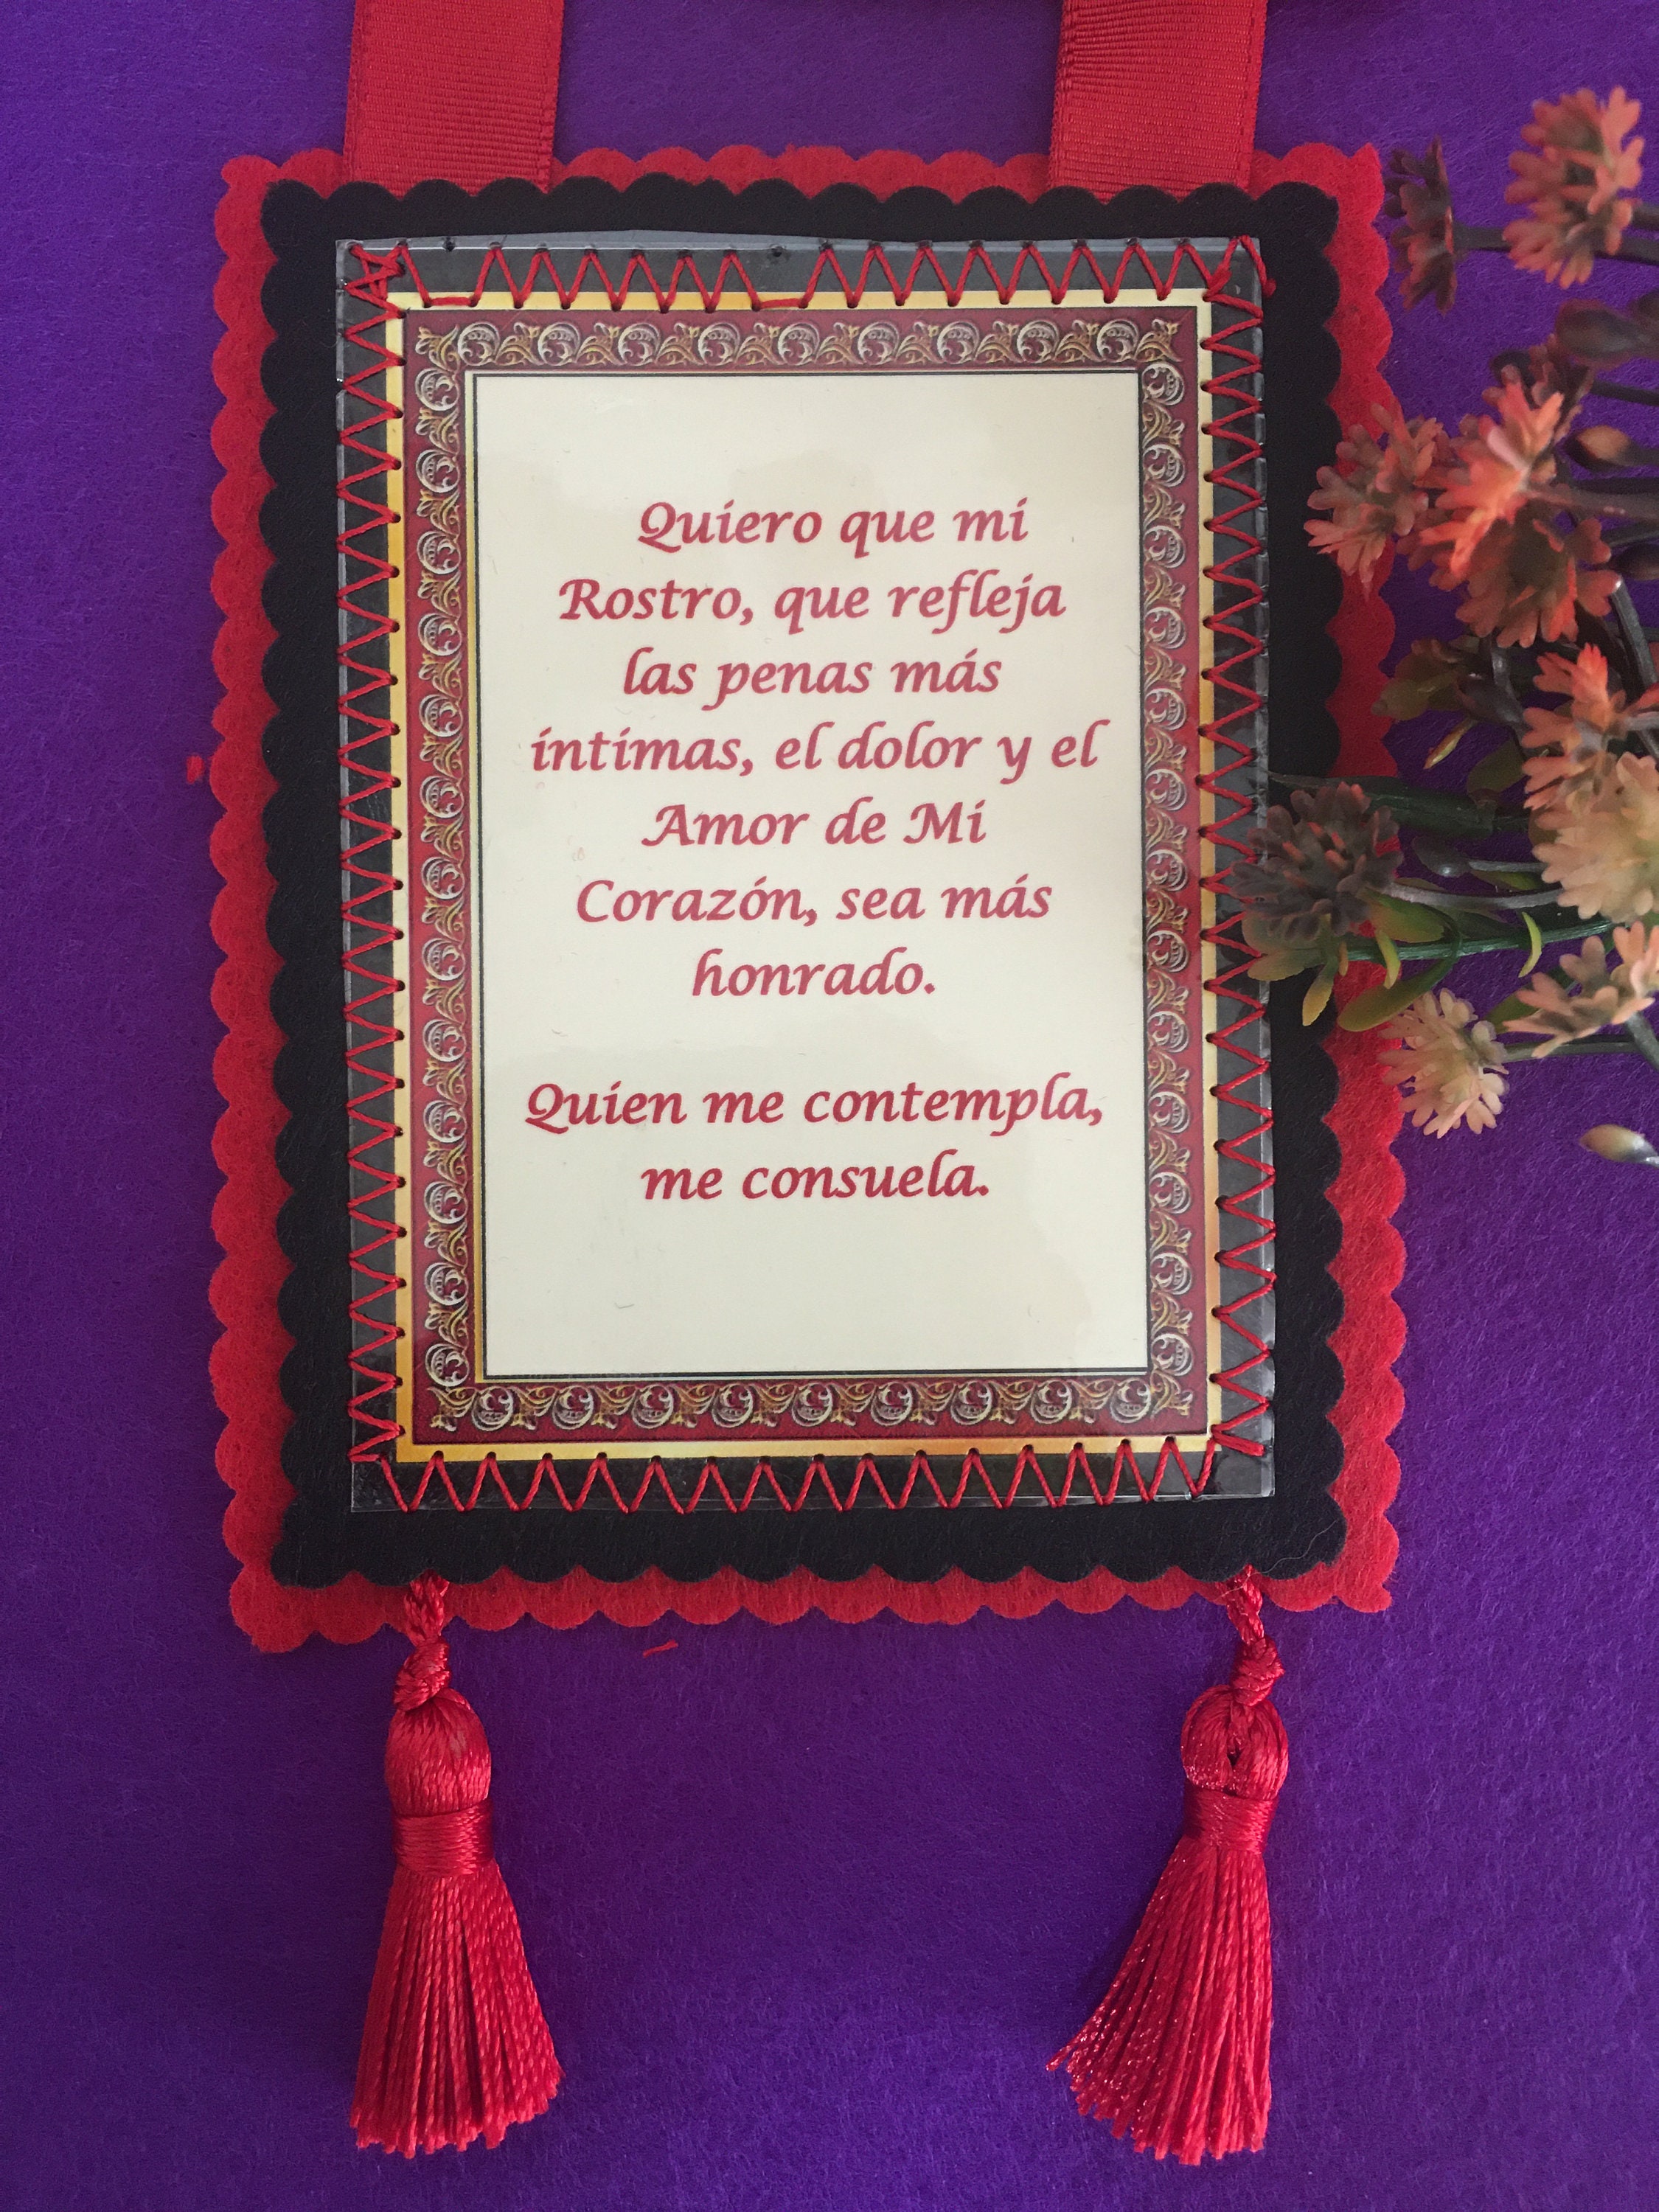 Quiero que mi
Rostro, que refleja
las penas más
íntimas, el dolor y el
Amor de Mi
Corazón, sea más
honrado.
Quien me contempla,
me consuela.